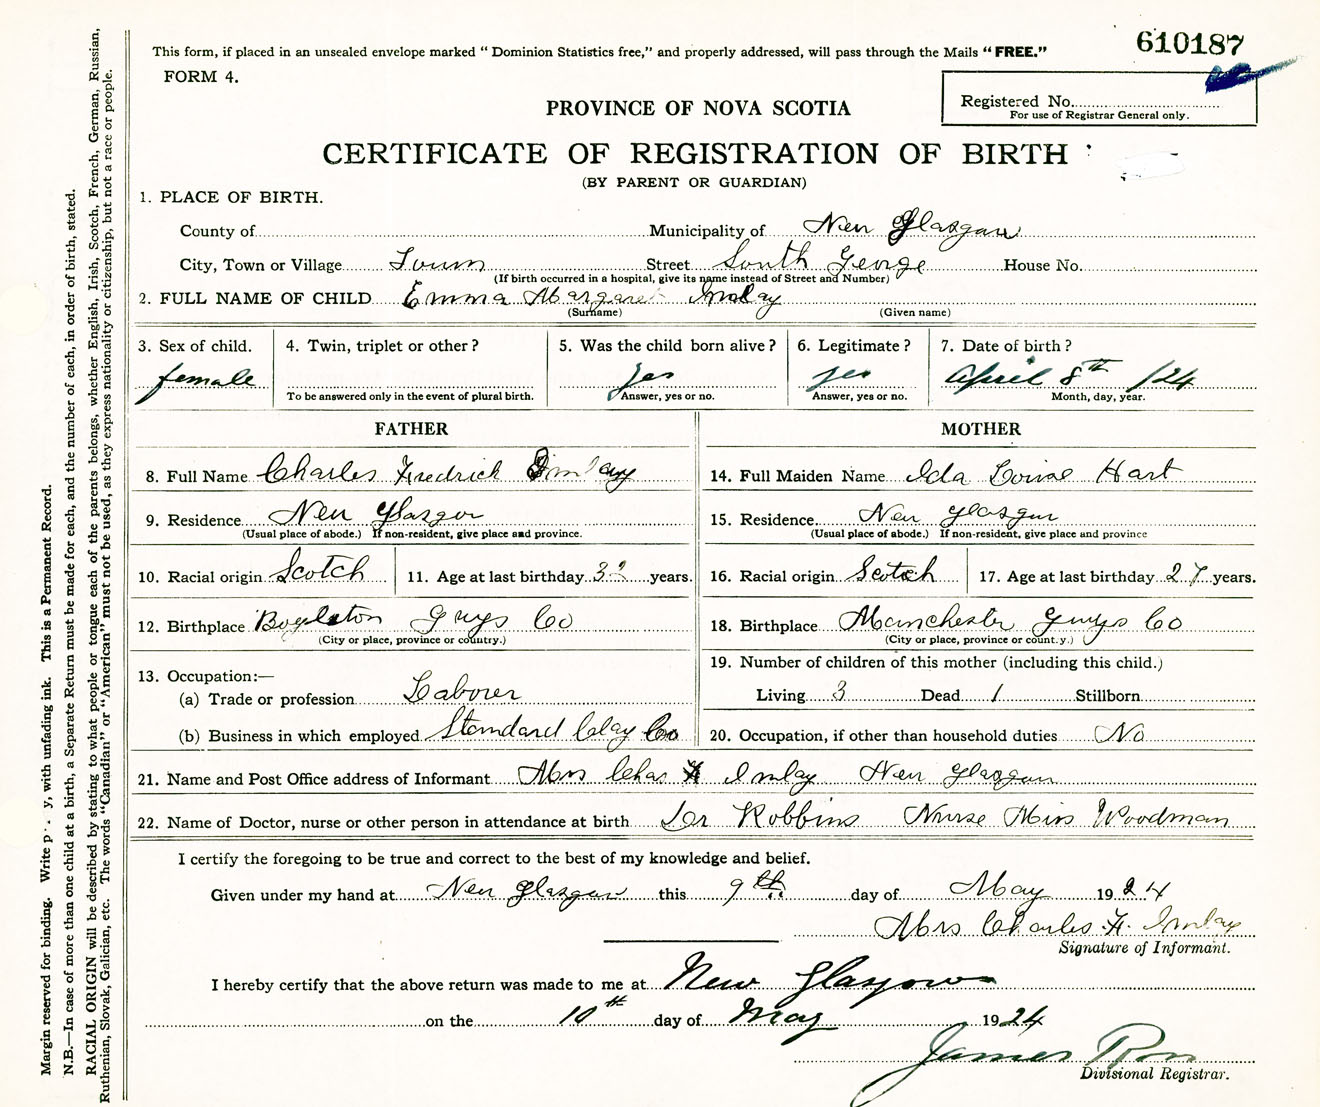 This form, if placed in an unsealed envelope marked "Dominion Statistics free," and properly addressed, will pass through the Mails "FREE."
610187
FORM 4.
Registered No.
For use of Registrar General only.
PROVINCE OF NOVA SCOTIA
CERTIFICATE OF REGISTRATION OF BIRTH
(BY PARENT OR GUARDIAN)
1. PLACE OF BIRTH.
County of Municipality of New Glasgow
City, Town or Village Town Street South George House No.
(If birth occurred in a hospital, give its name instead of Street and Number)
2. FULL NAME OF CHILD Emma Margaret Imlay
(Surname) (Given name)
3. Sex of child. 4. Twin, triplet or other? 5. Was the child born alive? 6. Legitimate? 7. Date of birth?
female yes yes April 8th /24
To be answered only in the event of plural birth. Answer, yes or no. Answer, yes or no. Month, day, year.
FATHER MOTHER
8. Full Name Charles Fredrick Imlay 14. Full Maiden Name Ida Louise Hart
9. Residence New Glasgow 15. Residence. New Glasgow
(Usual place of abode.) If non-resident, give place and province. (Usual place of abode.) If non-resident, give place and province
10. Racial origin Scotch 11. Age at last birthday 32 years. 16. Racial origin Scotch 17. Age at last birthday 27 years.
12. Birthplace Boylston Guys Co 18. Birthplace Manchester Guys Co
(City or place, province or country.) (City or place, province or count.y.)
19. Number of children of this mother (including this child.)
13. Occupation:—
(a) Trade or profession Laborer Living 3 Dead 1 Stillborn
(b) Business in which employed Standard Clay Co 20. Occupation, if other than household duties No
21. Name and Post Office address of Informant Mrs Chas F Imlay New Glasgow
22. Name of Doctor, nurse or other person in attendance at birth Dr Robbins Nurse Miss Woodman
I certify the foregoing to be true and correct to the best of my knowledge and belief.
Given under my hand at New Glasgow this 9th day of May 1924
Mrs Charles F. Imlay
Signature of Informant.
I hereby certify that the above return was made to me at New Glasgow
on the 10th day of May 1924
James Ross
Divisional Registrar.
Margin reserved for binding. Write p y, with unfading ink. This is a Permanent Record.
N.B.—In case of more than one child at a birth, a Separate Return must be made for each, and the number of each, in order of birth, stated.
RACIAL ORIGIN will be described by stating to what people or tongue each of the parents belongs, whether English, Irish, Scotch, French, German, Russian,
Ruthenian, Slovak, Galician, etc. The words "Canadian" or "American" must not be used, as they express nationality or citizenship, but not a race or people.